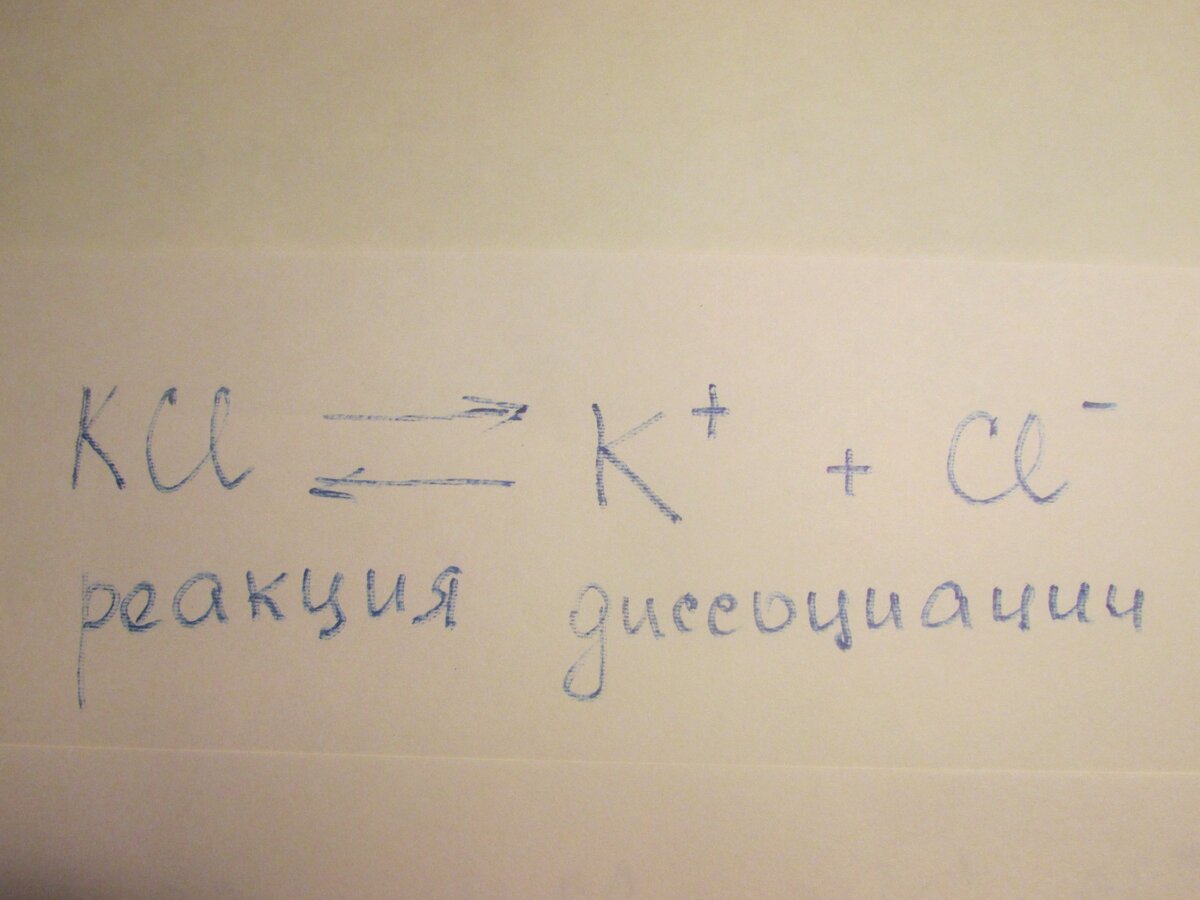 KCl ⇄ K⁺ + Cl⁻
реакция диссоциации